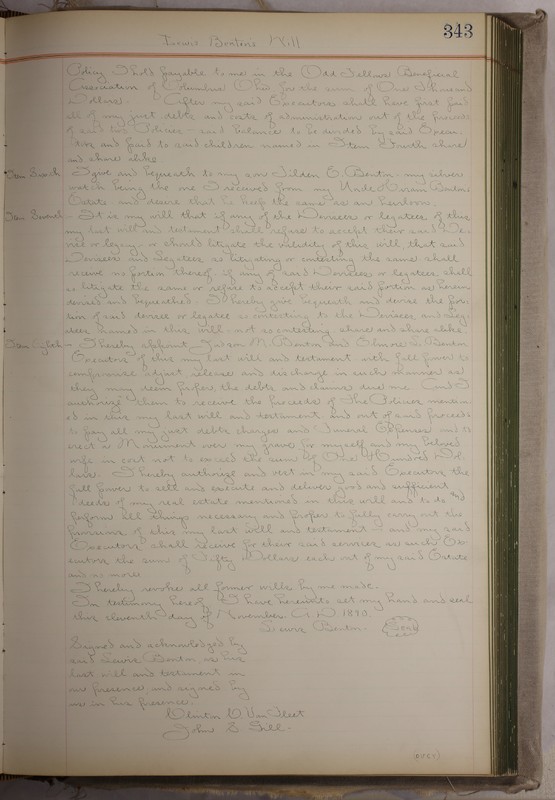 343
Lewis Benton's Will
Policy I hold payable to me in the Odd Fellows Beneficial
Association of Columbus Ohio for the sum of One Thousand
Dollars. After my said Executors shall have first paid
all of my just debts and costs of administration out of the proceeds
of said two Policies - said balance to be divided by said Execu-
tors and paid to said children named in Item Fourth share
and share alike
Item Seventh - I give and bequeath to my son Tilden E. Benton my silver
watch being the one I received from my Uncle Hiram Bentons
Estate and desire that he keep the same as an heirloom.
Item Seventh - It is my will that if any of the Devisees or legatees of this
my last will and testament shall refuse to accept their said De-
vise or legacy, or should litigate the validity of this will that said
Devisees and Legatees so litigating or contesting the same shall
receive no portion thereof. if any of said Devisees or legatees shall
so litigate the same or refuse to accept their said portion as herein
devised and bequeathed, I hereby give bequeath and devise the por-
tion of said devisee or legatee so contesting to the Devisees and Leg-
atees named in this will - not so contesting share and share alike.
Item Eighth - I hereby appoint M. Benton and Elmore S. Benton
Executors of this my last will and testament with full power to
compromise adjust release and discharge in such manner as
they may deem proper the debts and claims due me. And I
authorize them to receive the proceeds of the Policies mention-
ed in this my last will and testament, and out of said proceeds
to pay all my just debts charges and funeral Expenses and to
erect a Monument over my grave for myself and my beloved
wife in cost not to exceed the sum of One Hundred Dol-
lars. I hereby authorize and vest in my said Executors the
full power to sell and execute and deliver good and sufficient
deeds of my real estate mentioned in this will and to do and
perform all things necessary and proper to fully carry out the
provisions of this my last will and testament and my said
Executors shall receive for their said services as such Ex-
ecutors the sum of Fifty Dollars each out of my said Estate
and no more
I hereby revoke all former wills by me made.
In testimony hereof I have hereunto set my hand and seal
this eleventh day of November A.D. 1890.
Lewis Benton. Seal
Signed and acknowledged by
said Lewis Benton as his
last will and testament in
our presence and signed by
us in his presence.
Clinton D. VanFleet
John E. Gill.